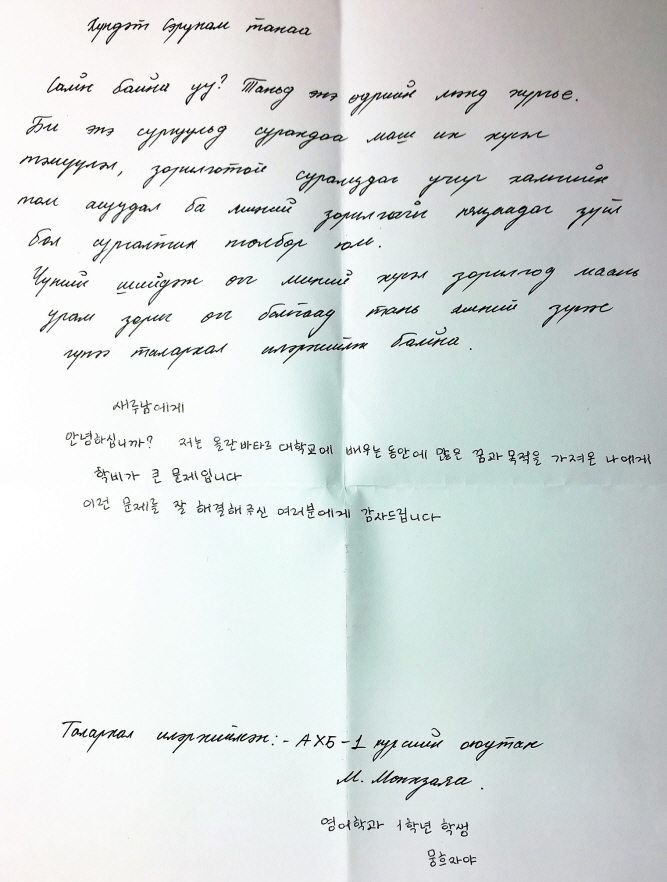 Хүндэт Сэрунам танаа
Сайн байна уу? Таньд энэ өдрийн мэнд хүргье.
Би энэ сургуульд сурахдаа маш их хүсэл
тэмүүлэл, зорилготой суралцдаг учир хамгийн
том асуудал ба миний зорилгыг няцаадаг зүйл
бол сургалтын төлбөр юм.
Үүнийг шийдэж өгч миний хүсэл зорилгод маань
урам зориг өгч байгаад тань миний зүрхэ
гүнээ талархал илэрхийлж байна.
새루남에게
안녕하십니까? 저는 울란바타르 대학교에 배우는 동안에 많은 꿈과 목적을 가져온 나에게
학비가 큰 문제입니다
이런 문제를 잘 해결해주신 여러분에게 감사드립니다
Талархал илэрхийлсэн: - АХБ-1 курсийн оюутан
М. Мөнхзаяа.
영어학과 1학년 학생
뭉흐자야